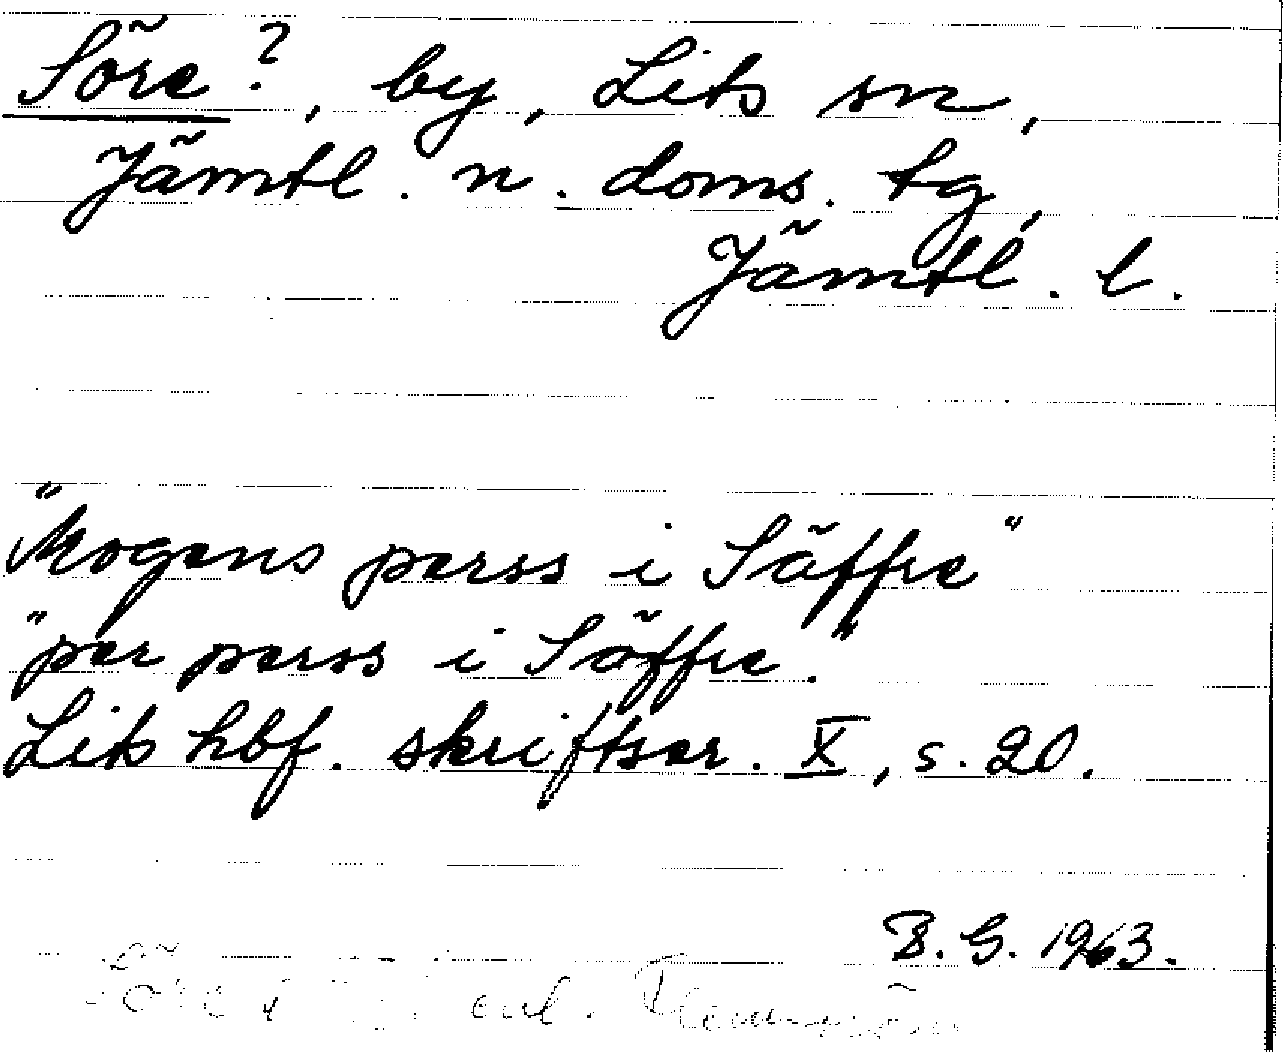 Söre ?, by, Lits sn,
Jämtl. n. doms. tg,
Jämtl. l.
"Mogens perss i Söffre"
"per perss i Söffre."
Lits hbf. skriftser. X, s. 20.
B. G. 1963.
Söre i enl. Flemmström